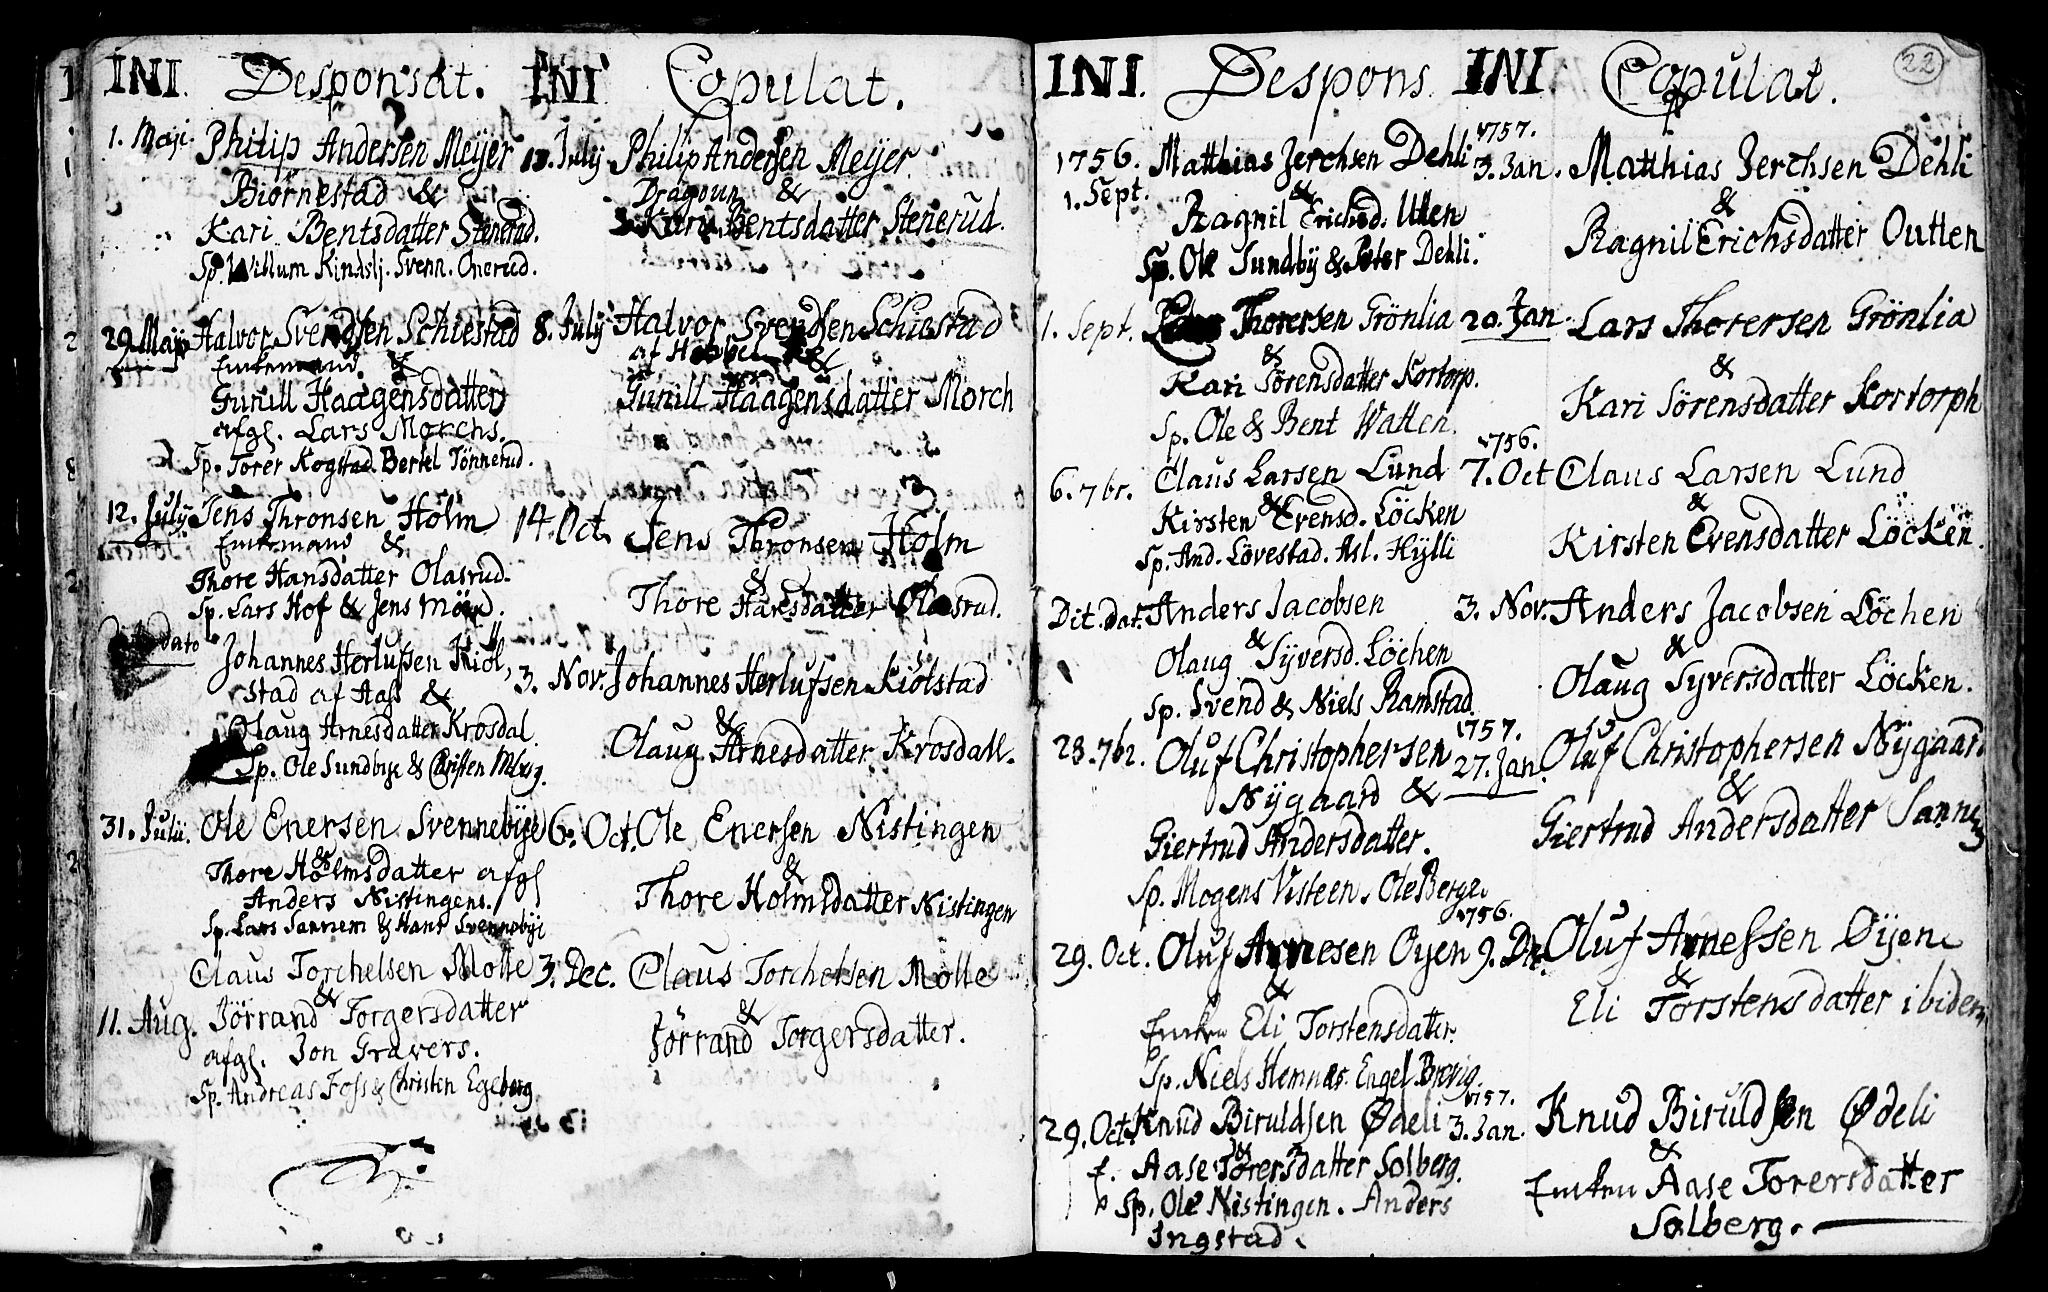 INI. Desponsat.
1. Maji. Philip Andersen Meijer
Biörnestad &
Kari Bentsdatter Stenerud.
Sp. Willum Kindslj. Svenn. Onerud.
29. Maji Halvor Svendsen Schiestad
Enkemand &
Gunill Haagensdatter
afgl. Lars Morchs.
Sp. Torer Kogstad. Bertel Tönnerud.
12. Julij Jens Thronsen Holm
Enkemand &
Thore Hansdatter Olasrud.
Sp. Lars Hof & Jens
dato Johannes Herlufsen Kiöl,
stad af Aass &
Olaug Arnesdatter Krosdal.
Sp. Ole Sundbye & Christen
31. Julii. Ole Enersen Svennebÿe
&
Thore Holmsdatter afgl
Anders Nistingens.
Sp. Lars Sannem & Hans Svennebÿe
Claus Torchelsen Molte
&
11. Aug. Jörrand Torgersdatter
afgl. Jon Gravers.
Sp. Andreas Foss & Christen Egeberg
INI Copulat.
July Philip Andersen Meijer
Dragoun &
Kari Bentsdatter Stenerud.
8. July Halvor Svendsen Schiestad
af &
Gunill Haagensdatter Morch
14. Oct. Jens Thronsen Holm
&
Thore Hansdatter Olasrud.
3. Nov. Johannes Herlufsen Kiölstad
&
Olaug Arnesdatter Krosdall.
6. Oct. Ole Enersen Nistingen
&
Thore Holmsdatter Nistingen
3. Dec. Claus Torchelsen Molte
&
Jörrand Torgersdatter.
INI. Despons.
1756. Matthias Jerchsen Dehli
1. Sept. &
Ragnil Erichsd. Utlen
Sp. Ole Sundbÿ & Peter Dehli.
1. Sept. Lars Thorersen Grönlia
&
Kari Sörensdatter Kortorp.
Sp. Ole & Bent Watten.
6. 7br. Claus Larsen Lund
&
Kirsten Evensd. Löcken
Sp. And. Lövestad. Asl. Hÿlli
Dit. dat. Anders Jacobsen
&
Olaug Sÿversd. Löchen
Sp. Svend & Niels Ramstad.
28. 7br. Oluf Christophersen
Nÿgaard &
Giertrud Andersdatter.
Sp. Mogens Visteen. Ole Berge.
29. Oct. Oluf Arnesen Oyen
&
Enken Eli Torstensdatter.
Sp. Niels Hemnæs. Engel Brevig.
29. Oct. Knud Biruldsen Ødeli
&
f. Aase Torersdatter Solberg.
Sp. Ole Nistingen. Anders
Ingstad.
INI Copulat.
22
1757.
3. Jan. Matthias Jerchsen Dehli
&
Ragnil Erichsdatter Outlen
20. Jan. Lars Thorersen Grönlia
&
Kari Sörensdatter Kortorph
1756.
7. Oct Claus Larsen Lund
&
Kirsten Evensdatter Löcken.
3. Nov. Anders Jacobsen Löchen
&
Olaug Syversdatter Löcken.
1757.
27. Jan. Oluf Christophersen Nÿgaard
&
Giertrud Andersdatter
1756.
9. Dec. Oluf Arnessen Öijen
&
Eli Torstensdatter ibidem
1757.
3. Jan. Knud Biruldsen Ødeli
&
Enken Aase Torersdatter
Solberg.